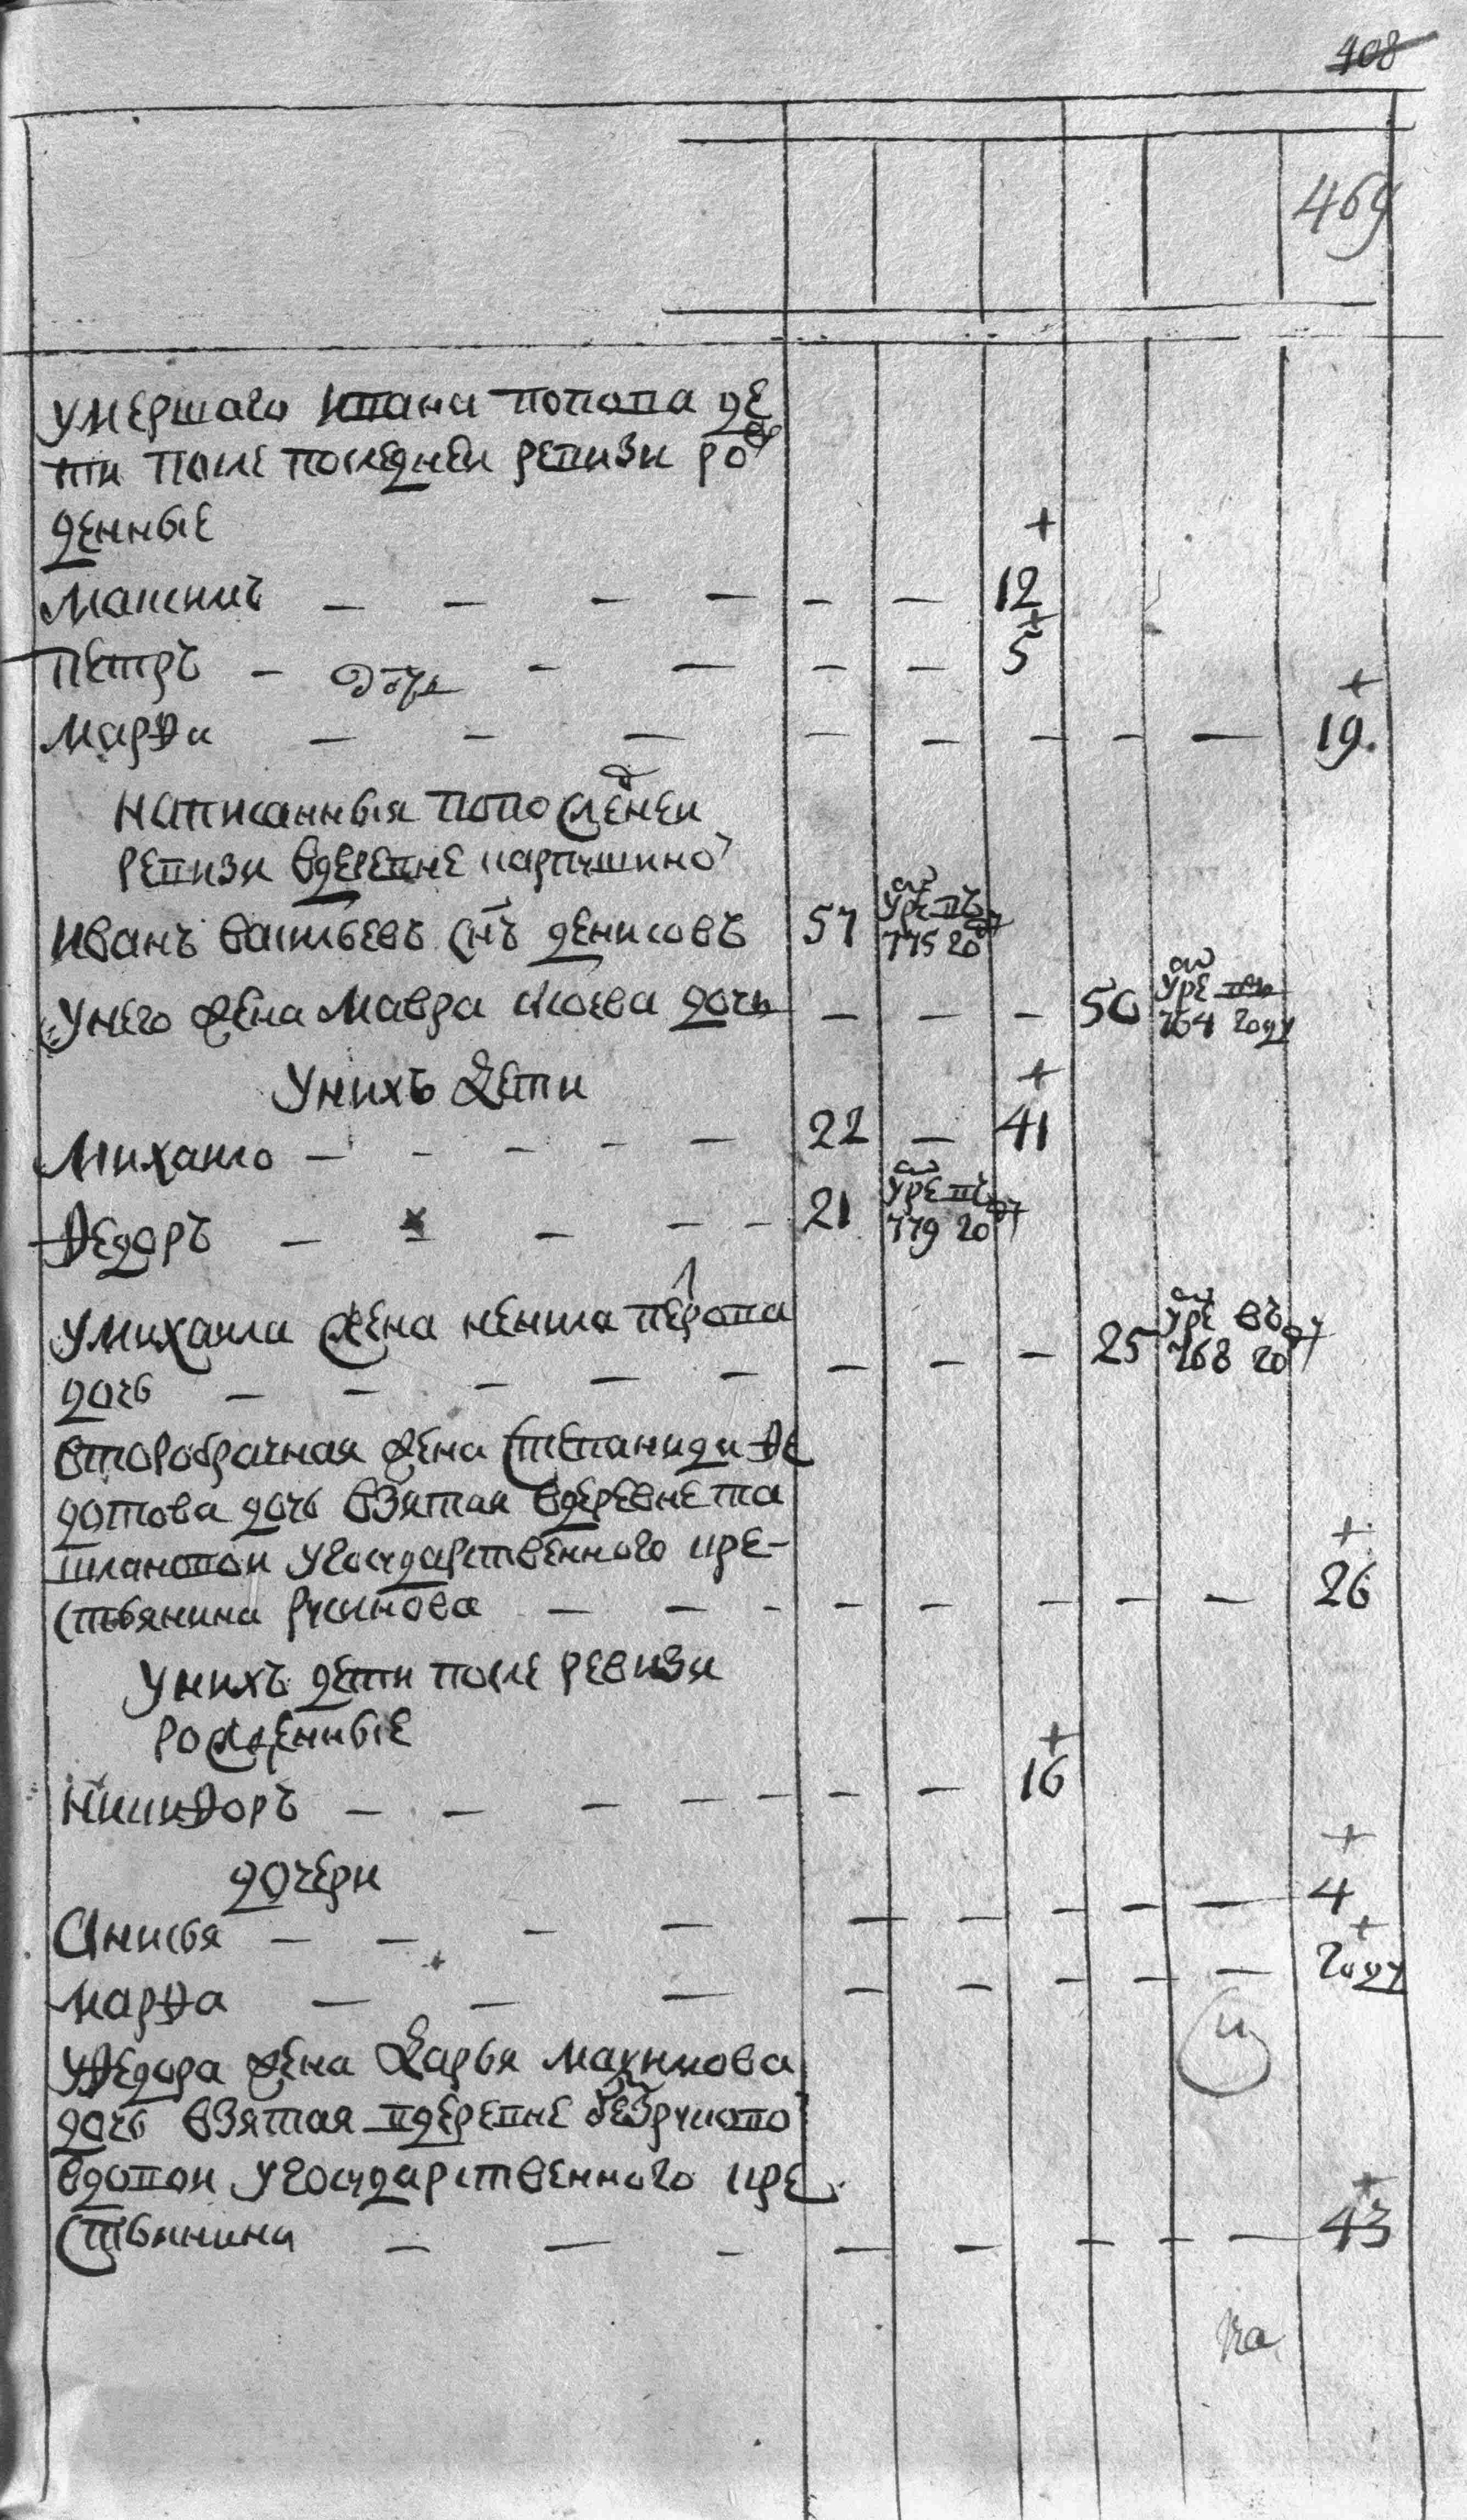 408
469
умершаго ивана попова де
ти после последней ревизи рож
денные
+
максимъ — — — — — — 12
+
петръ — — — — — 5
дочь
+
марфа — — — — — — — — 19.
написанныя попоследней
ревизи вдеревне карпушиной
иванъ васильевъ снъ денисовъ 57 умре въ 775 году
унего жена мавра дочь — — — 50 умре въ 764 году
унихъ дети
+
михаило — — — — — 22 — 41
федоръ — — — — — 21 умре въ 779 году
умихаила жена ненила перова
дочь — — — — — — — — 25 умре въ 768 году
второбрачная жена степанида фе
дотова дочь взятая вдеревне та
шлановои угосударственного кре-
+
стьянина русинова — — — — — — — — 26
унихъ дети после ревизи
рожденные
+
никифоръ — — — — — — — 16
дочери
+
анисья — — — — — — — — — 4
+
марфа — — — — — — — — году
уфедора жена дарья максимова
дочь взятая вдеревне безруково
вдовои угосударственного кре
+
стьянина — — — — — — — — 43